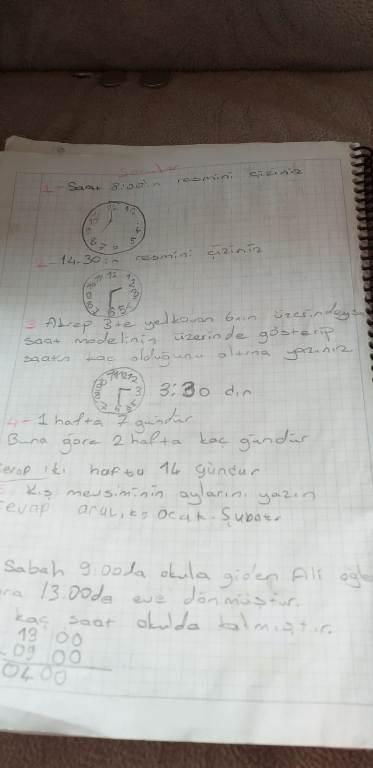 Sorular
1-Saat 8:00 in resmini çiziniz
2-14.30 in resmini çiziniz
3 Akrep 3te yelkovan 6nın üzerindeyse
saat modelinin üzerinde gösterip
saatin kaç olduğunu altına yazınız
3:30 dır
4-1 hafta 7 gündür
Buna göre 2 hafta kaç gündür
cevap iki hafta 14 gündür
5. Kış mevsiminin aylarını yazın
cevap aralık, ocak. Şubat.
Sabah 9:00da okula giden Ali öğle
13.00de eve dönmüştür.
kaç saat okulda kalmıştır.
13 00
- 09 00
04 00